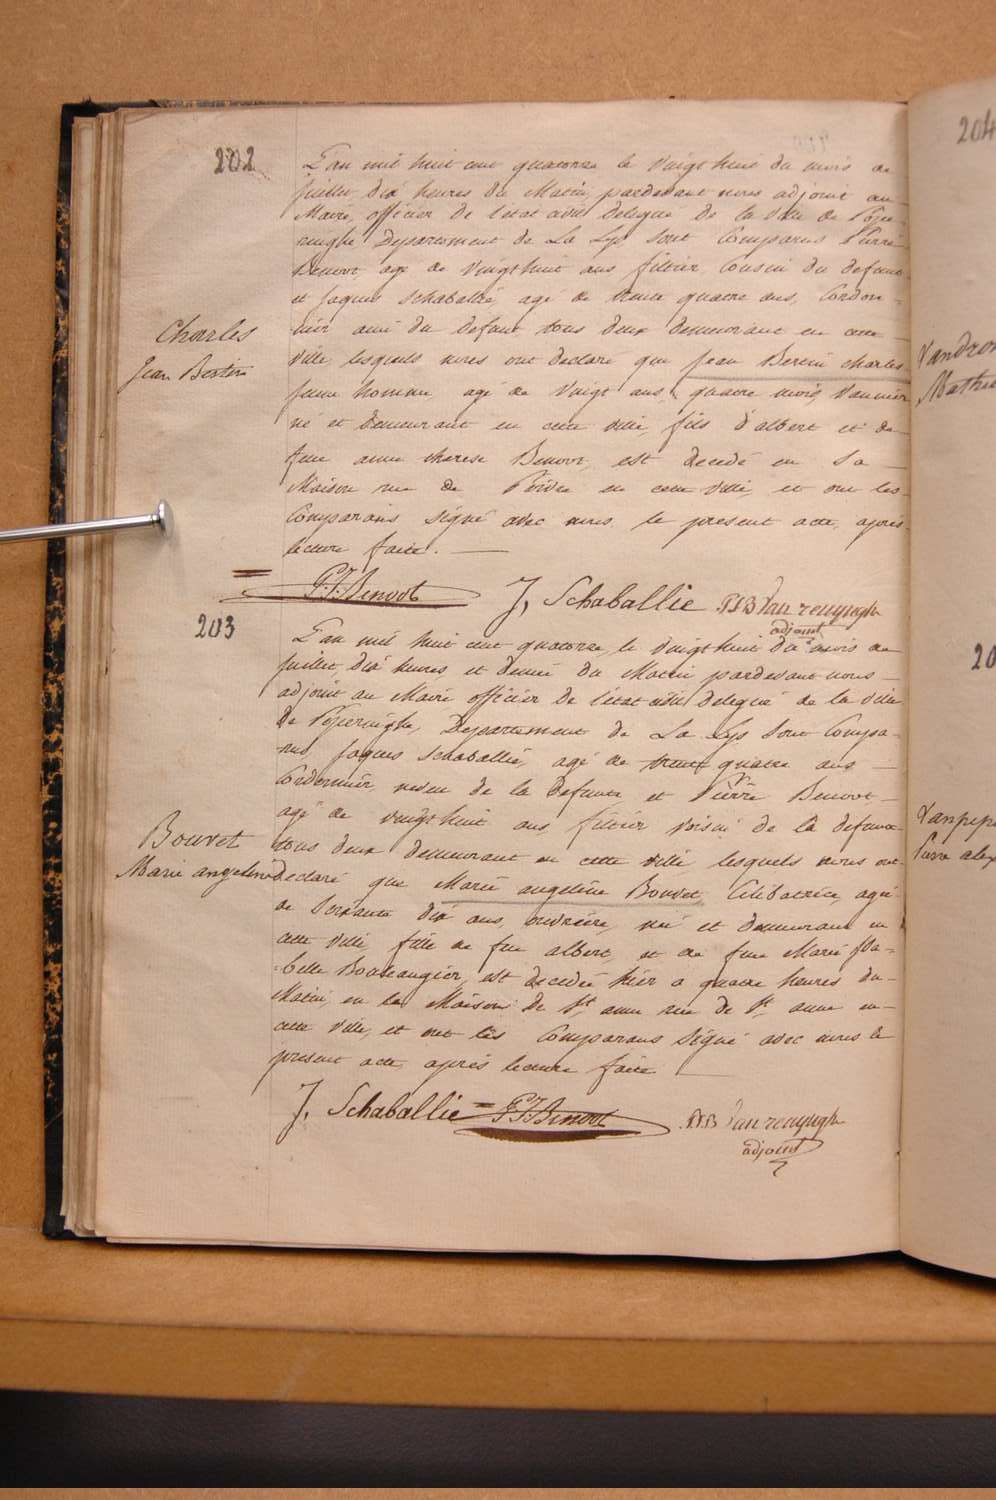 202
L'an mil huit cent quatorze le vingt huit du mois de
juillet, dix heures du Matin, pardevant nous adjoint au
Maire, officier de l'état civil delegué de la ville de Pope-
ringhe Departement de La Lys sont Comparus Pierre
Benoot, agé de vingt huit ans, filtier, Cousin du defunt
et Jaques Schaballié, agé de trente quatre ans, Cordon-
nier ami du defunt tous deux demeurant en cette
Charles
Jean Bertin
ville, lesquels nous ont declaré que Jean Bertin Charles
jeune homme agé de vingt ans, quatre mois, vannier
né et demeurant en cette ville, fils d'albert et de
feue anne therese Benoot, est decedé en sa
Maison rue de en cette ville, et ont les
Comparans signé avec nous le present acte, après
lecture faite.
P.J. Benoot J, Schaballie P.J.B Van renynghe
adjoint
203
L'an mil huit cent quatorze, le vingt huit du mois de
juillet, dix heures, et demie du Matin pardevant nous
adjoint au Maire officier de l'état civil delegué de la ville
de Poperinghe, Departement de La Lys sont Compa-
rus Jaques Schaballié, agé de trente quatre ans
Cordonnier, neveu de la defunte et Pierre Benoot
agé de vingt huit ans filtier voisin de la defunte
Bouvet
Marie angeline
tous deux demeurant en cette ville lesquels nous ont
declaré que Marie angeline Bouvet, Celibatrice, agée
de soixante dix ans, ouvrière, née et demeurant en
cette ville, fille de feu albert, et de feue Marie Isa-
belle Boulangier, est decedée hier a quatre heures du
Matin, en la Maison de St. anne rue de St. anne en
cette ville, et ont les Comparans signé avec nous le
present acte, après lecture faite
J, Schaballie P.J. Benoot P.J.B Van renynghe
adjoint
204
Mathie
20
Vanpepe